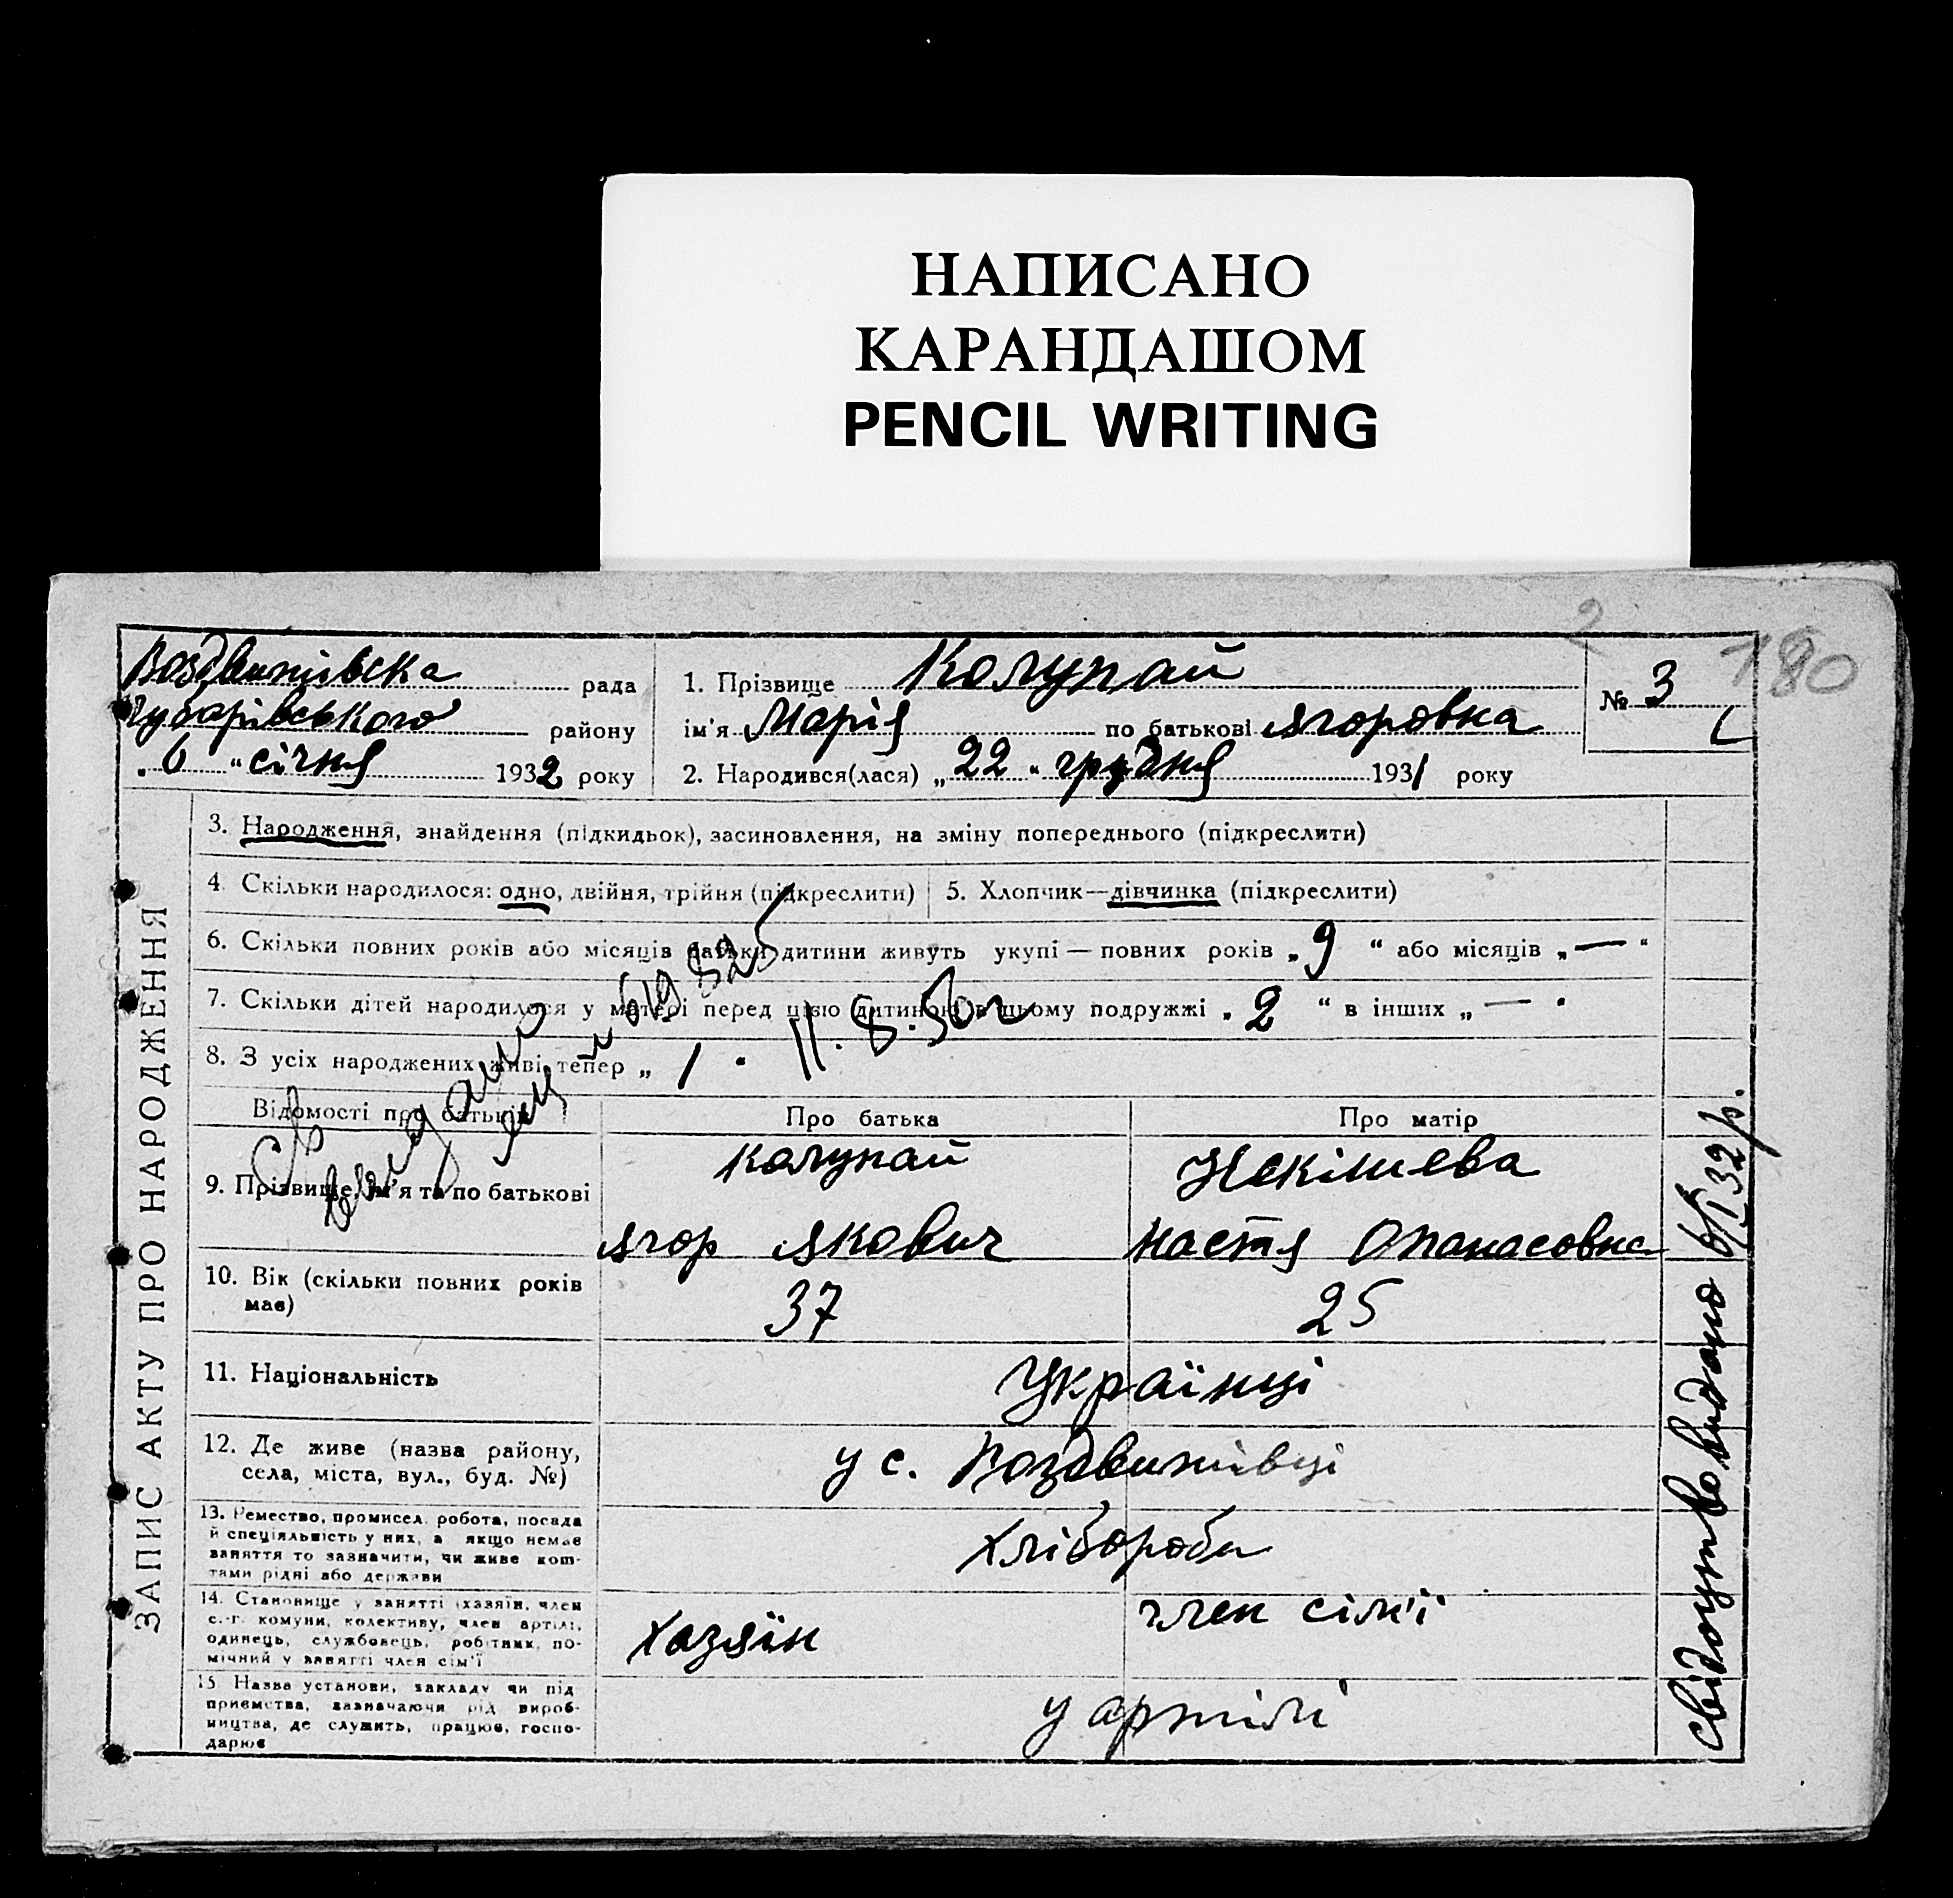 НАПИСАНО
КАРАНДАШОМ
PENCIL WRITING
2
180
Воздвижівська рада
Чубарівського району
„6“ січня 1932 року
1. Прізвище Колупай
ім'я Марія по батькові Ягоровна
2. Народився(лася) „22“ грудня 1931 року
№ 3
ЗАПИС АКТУ ПРО НАРОДЖЕННЯ
3. Народження, знайдення (підкидьок), засиновлення, на зміну попереднього (підкреслити)
4. Скільки народилося: одно, двійня, трійня (підкреслити)
5. Хлопчик—дівчинка (підкреслити)
6. Скільки повних років або місяців батьки дитини живуть укупі — повних років „9“ або місяців „—“
7. Скільки дітей народилося у матері перед цією дитиною в цьому подружжі „2“ в інших „—“
8. З усіх народжених живі тепер „1“
11.8.50г
Відомості про батьків
Про батька
Про матір
9. Прізвище, ім'я та по батькові
Колупай
Ягор Якович
Некішева
Настя Опанасовна
10. Вік (скільки повних років
має)
37
25
11. Національність
Українці
12. Де живе (назва району,
села, міста, вул., буд. №)
у с. Воздвижівці
13. Ремество, промисел, робота, посада
й спеціяльність у них, а якщо немає
заняття то зазначити, чи живе кош-
тами рідні або держави
Хлібороби
14. Становище у занятті (хазяїн, член
с.-г. комуни, колективу, член артілі,
одинець, службовець, робітник, по-
мічний у занятті член сім'ї
Хазяїн
член сім'ї
15 Назва установи, закладу чи під
приємства, зазначаючи рід вироб-
ництва, де служить, працює, госпо-
дарює
у артілі
Свідоцтво видано 6/I 32 р.